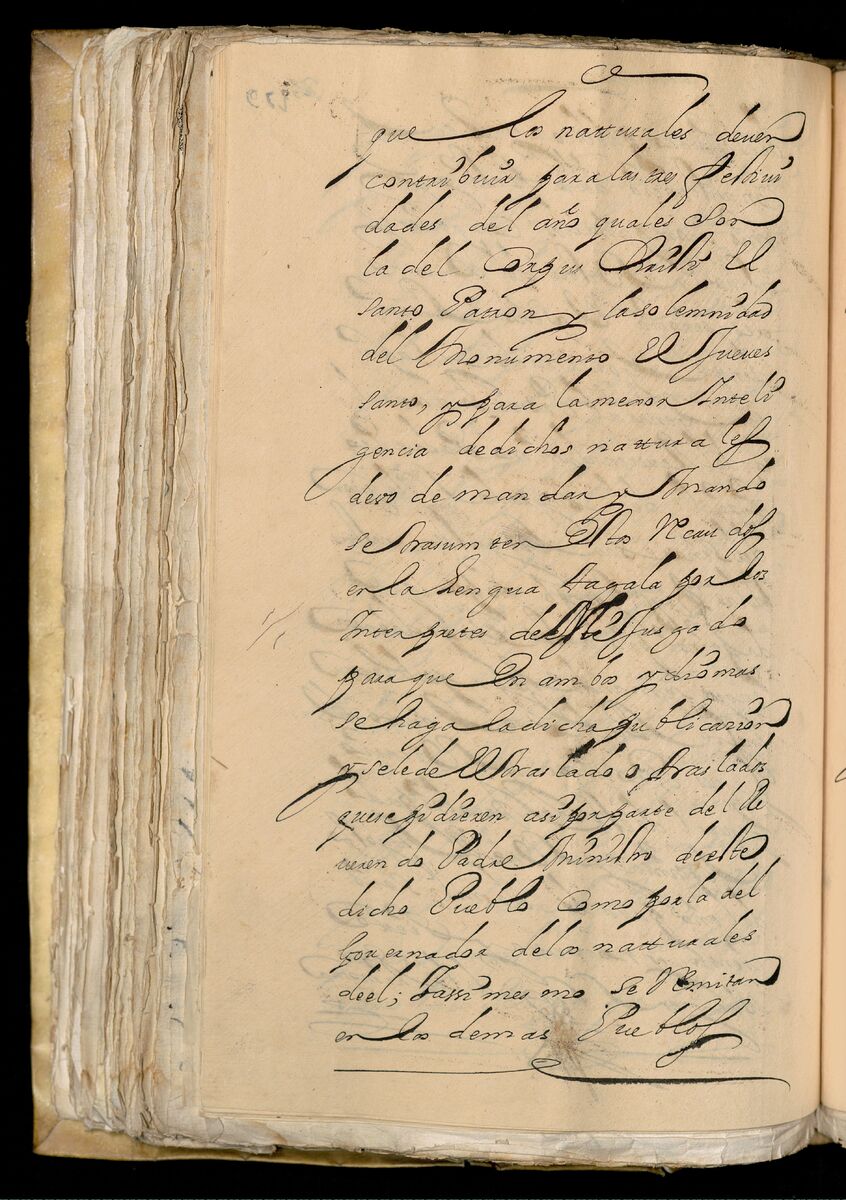 que los natturales deven
contribuir para las tres festiui
dades del año quales son
la del Corpus Cristi el
santo Patron y la solemnidad
del Monumento el Jueves
santo, y para la menor Inteli
gencia de dichos natturales
devo de mandar y Mando
se trasumten estos Recaudos
en la lengua tagala por los
Interpretes de este Jusgado
para que en ambos ydiomas
se haga la dicha publicazion
y se le de el traslado o traslados
que se pidieren asi por parte del Re
uerendo Padre Ministro de este
dicho Pueblo como por la del
Governador de los natturales
de el; Yassimesmo se Remitan
en los demas Pueblos